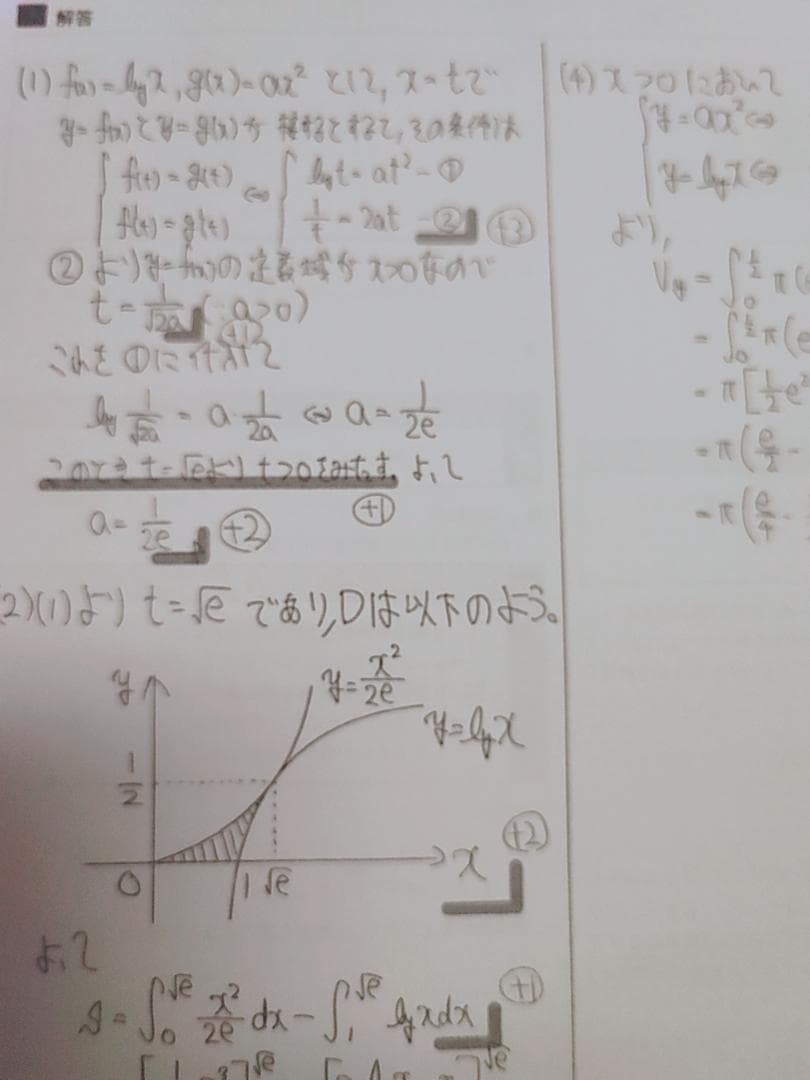 解答
(1) f(x) = log x, g(x) = ax² として, x = t で
y = f(x) と y = g(x) が 接するとすると, その条件は
f(t) = g(t) ⇔ log t = at² - ①
f'(t) = g'(t) 1/t = 2at - ② +3
② より y = f(x) の 定義域が x>0 なので
t = 1/√2a (∵ a>0) +1
これを ①に代入して
log 1/√2a = a・1/2a ⇔ a = 1/2e
このとき t = √e より t>0 をみたす。よって
+1
a = 1/2e +2
(2)(1)より t = √e であり, Dは以下のよう。
y
y = x²/2e
y = log x
1/2
+2
x
0
1 √e
よって
S = ∫₀^√e x²/2e dx - ∫₁^√e log x dx +1
(4) x > 0 において
y = ax² ⇔
y = log x ⇔
より,
= π(e/2 -
= π(e/4 -